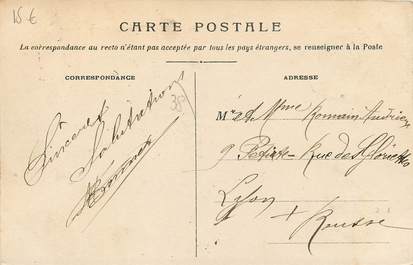 15 €
CARTE POSTALE
La correspondance au recto n'étant pas acceptée par tous les pays étrangers, se renseigner à la Poste
CORRESPONDANCE
ADRESSE
Sincères
Salutations
M et Mme Romain
9 Petite Rue des
Lyon
+ Rousse